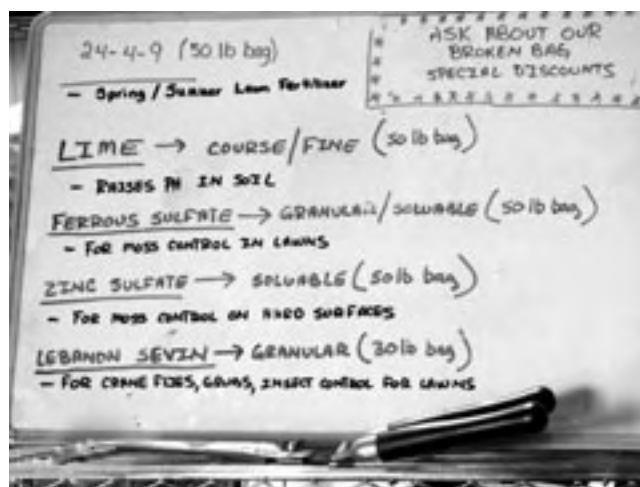 24-4-9 (50 lb bag)
- Spring / Summer Lawn Fertilizer
ASK ABOUT OUR
BROKEN BAG
SPECIAL DISCOUNTS
LIME → COURSE/FINE (50 lb bag)
- RAISES PH IN SOIL
FERROUS SULFATE → GRANULAR/SOLUABLE (50 lb bag)
- FOR MOSS CONTROL IN LAWNS
ZINC SULFATE → SOLUABLE (50 lb bag)
- FOR MOSS CONTROL ON HARD SURFACES
LEBANON SEVIN → GRANULAR (30 lb bag)
- FOR CRANE FLIES, GRUBS, INSECT CONTROL FOR LAWNS